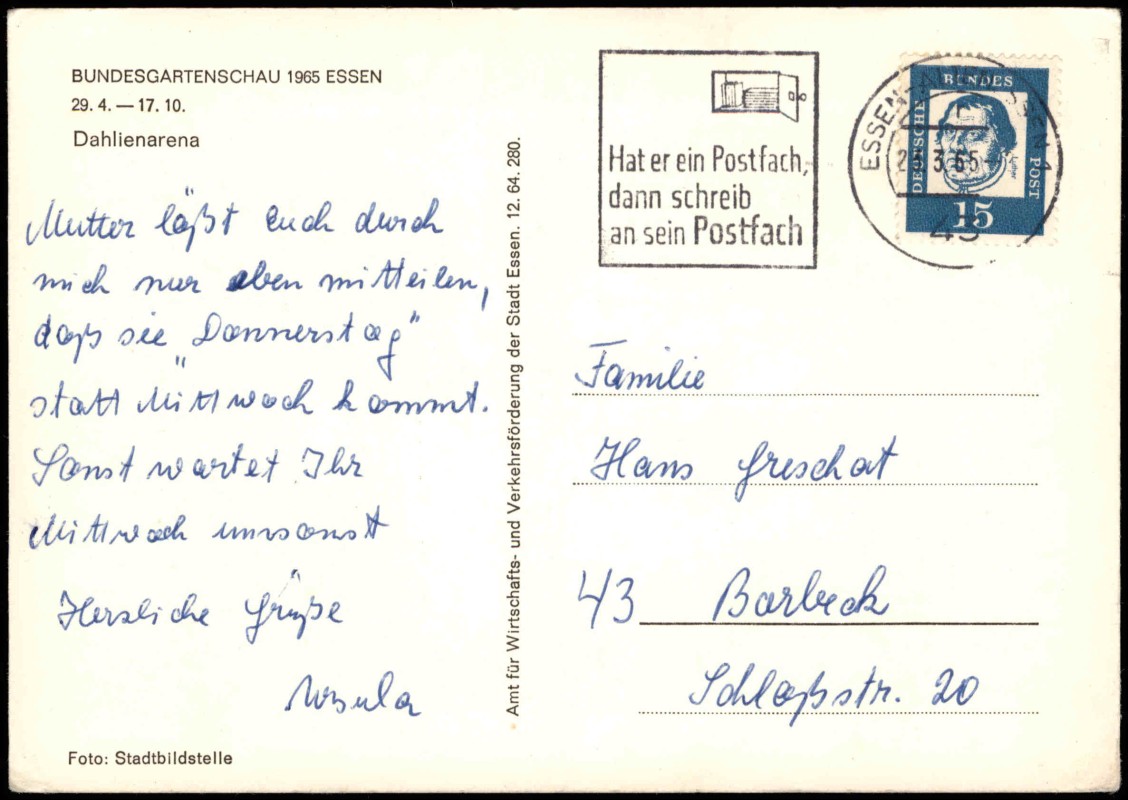 BUNDESGARTENSCHAU 1965 ESSEN
29. 4. — 17. 10.
Dahlienarena
Mutter läßt euch durch
mich nur eben mitteilen,
daß sie "Donnerstag"
statt Mittwoch kommt.
Sonst wartet Ihr
Mittwoch umsonst
Herzliche Grüße
Ursula
Foto: Stadtbildstelle
Amt für Wirtschafts- und Verkehrsförderung der Stadt Essen. 12. 64. 280.
Hat er ein Postfach,
dann schreib
an sein Postfach
ESSEN
3.65
43
DEUTSCHE BUNDES POST
Luther
15
Familie
Hans Greschat
43 Borbeck
Schloßstr. 20